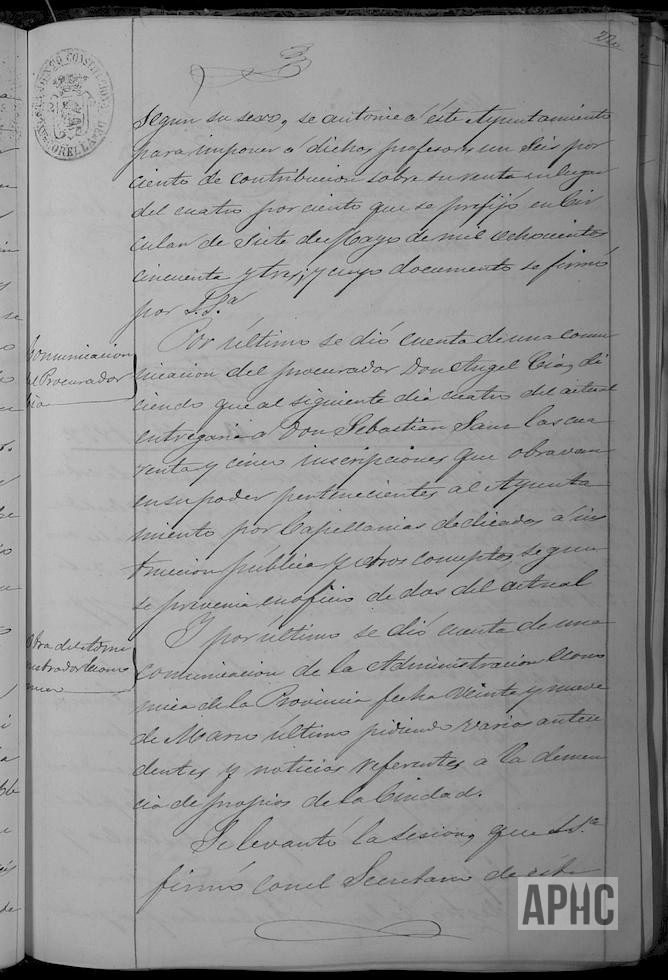 Segun su sexo, se autorice á éste Ayuntamiento
para imponer á dichos profesores un Seis por
ciento de contribucion sobre su renta en lugar
del cuatro por ciento que se prefijó en Cir
cular de Siete de Mayo de mil ochocientos
cincuenta y tres; y cuyo documento se firmó
por S.Sª
Comunicacion
del Procurador
Cia
Por último se dió cuenta de una comu
nicacion del procurador Don Angel Cia, di
ciendo que al siguiente dia cuatro del actual
entregaria a Don Sebastian Sanz las cua
renta y cinco inscripciones que obraban
en su poder pertenecientes al Ayunta
miento por Capellanias dedicadas á ins
truccion pública y otros conceptos, segun
se prevenia en oficio de dos del actual
Otra del Admi
nistrador Econo
mico
Y por último se dió cuenta de una
comunicacion de la Administracion Econo
mica de la Provincia fecha veinte y nueve
de Marzo último pidiendo varios antece
dentes y noticias referentes a la
de propios de la Ciudad.
Se levantó la sesion, que S.S.ª
firmó con el Secretario de este
APHC